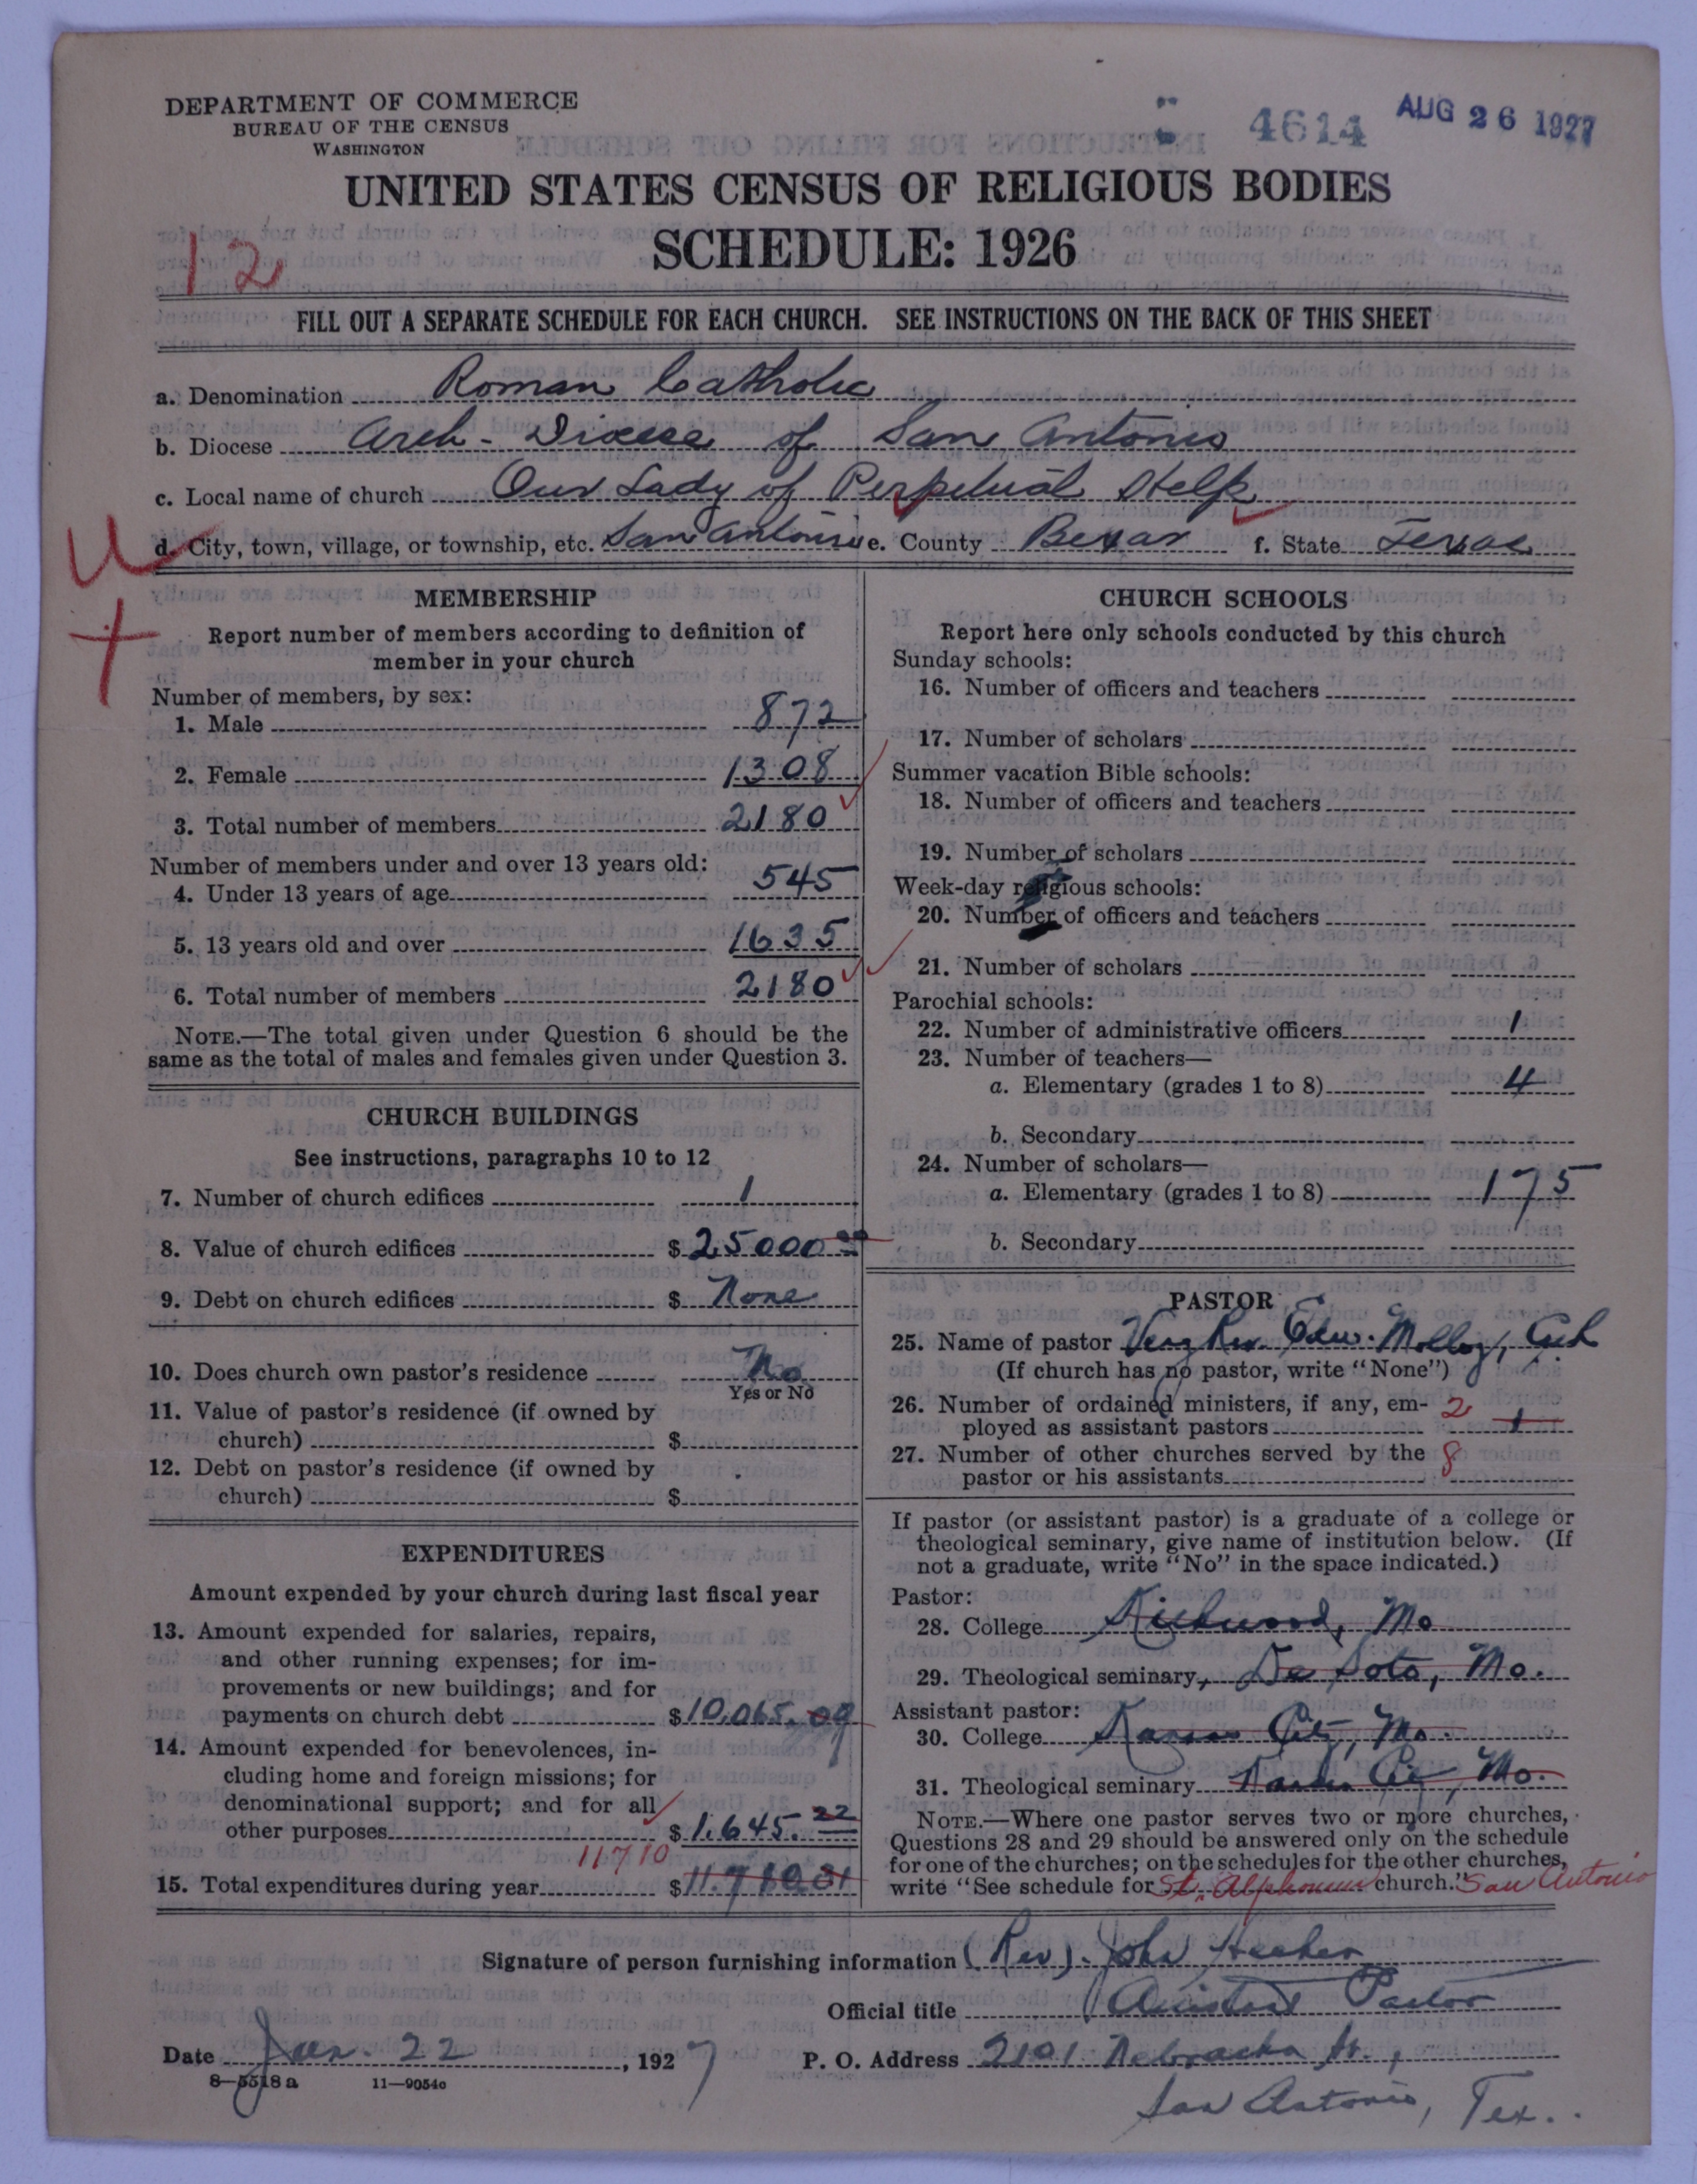 DEPARTMENT OF COMMERCE
BUREAU OF THE CENSUS
WASHINGTON
4614
AUG 26 1927
UNITED STATES CENSUS OF RELIGIOUS BODIES
SCHEDULE: 1926
12
FILL OUT A SEPARATE SCHEDULE FOR EACH CHURCH. SEE INSTRUCTIONS ON THE BACK OF THIS SHEET
a. Denomination Roman Catholic
b. Diocese Arch-Diocese of San Antonio
c. Local name of church Our Lady of Perpetual Help
d. City, town, village, or township, etc. San Antonio e. County Bexar f. State Texas
U
MEMBERSHIP
Report number of members according to definition of
member in your church
Number of members, by sex:
1. Male 872
2. Female 1308
3. Total number of members 2180
Number of members under and over 13 years old:
4. Under 13 years of age 545
5. 13 years old and over 1635
6. Total number of members 2180
NOTE.—The total given under Question 6 should be the
same as the total of males and females given under Question 3.
CHURCH BUILDINGS
See instructions, paragraphs 10 to 12
7. Number of church edifices 1
8. Value of church edifices $ 25000 00
9. Debt on church edifices $ None
10. Does church own pastor's residence No
Yes or No
11. Value of pastor's residence (if owned by
church) $
12. Debt on pastor's residence (if owned by
church) $
EXPENDITURES
Amount expended by your church during last fiscal year
13. Amount expended for salaries, repairs,
and other running expenses; for im-
provements or new buildings; and for
payments on church debt $ 10,065.09
14. Amount expended for benevolences, in-
cluding home and foreign missions; for
denominational support; and for all
other purposes $ 1,645.22
11710
15. Total expenditures during year $ 11.710.31
CHURCH SCHOOLS
Report here only schools conducted by this church
Sunday schools:
16. Number of officers and teachers
17. Number of scholars
Summer vacation Bible schools:
18. Number of officers and teachers
19. Number of scholars
Week-day religious schools:
20. Number of officers and teachers
21. Number of scholars
Parochial schools:
22. Number of administrative officers 1
23. Number of teachers—
a. Elementary (grades 1 to 8) 4
b. Secondary
24. Number of scholars—
a. Elementary (grades 1 to 8) 175
b. Secondary
PASTOR
25. Name of pastor Very Rev. Edw. Molloy,
(If church has no pastor, write "None")
26. Number of ordained ministers, if any, em-
ployed as assistant pastors 2 1
27. Number of other churches served by the
pastor or his assistants 8
If pastor (or assistant pastor) is a graduate of a college or
theological seminary, give name of institution below. (If
not a graduate, write "No" in the space indicated.)
Pastor:
28. College Kirkwood, Mo
29. Theological seminary, De Soto, Mo.
Assistant pastor:
30. College Kansas City, Mo.
31. Theological seminary Kansas City, Mo.
NOTE.—Where one pastor serves two or more churches,
Questions 28 and 29 should be answered only on the schedule
for one of the churches; on the schedules for the other churches,
write "See schedule for St. Alphonsus church." San Antonio
Signature of person furnishing information (Rev). John Hecker
Official title Assistant Pastor
Date Jan. 22, 1927 P. O. Address 2101 Nebraska St.,
8—5518 a 11—9054c
San Antonio, Tex.